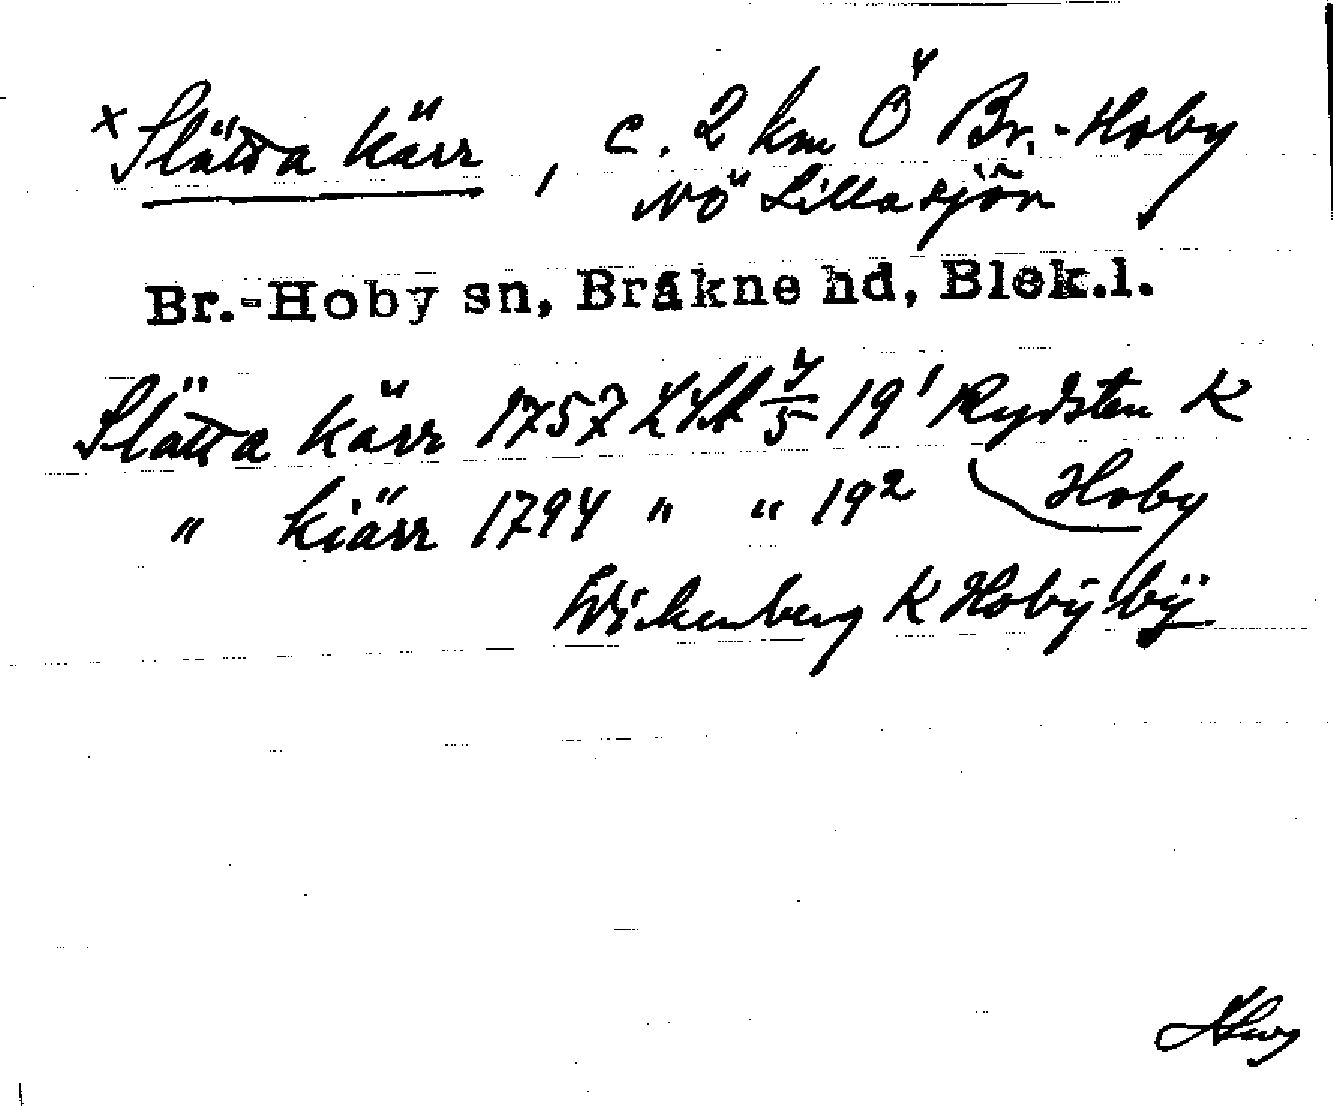 x Slätta kärr, c. 2 km Ö Br.-Hoby
NÖ Lillasjön
Br.-Hoby sn, Bräkne hd, Blek.l.
Slätta kärr 1757 LSA 4/5 19¹ Rydsten K Hoby
" kiärr 1794 " " 19² Wickenberg K Hoby by